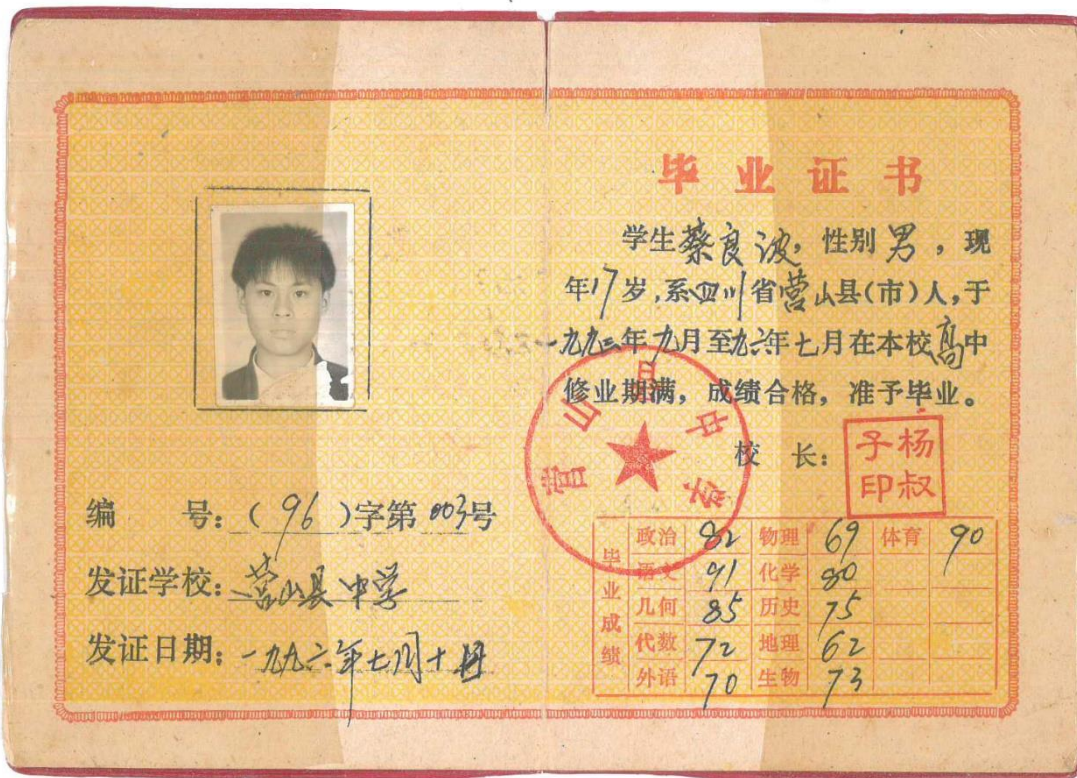 毕业证书
学生蔡良波，性别男，现
年17岁，系四川省营山县(市)人，于
一九九三年九月至九六年七月在本校高中
修业期满，成绩合格，准予毕业。
校 长：
杨叔子印
营山县中学
编 号：(96)字第003号
发证学校：营山县中学
发证日期：一九九六年七月十日
毕业成绩
政治 82 物理 69 体育 90
语文 91 化学 80
几何 85 历史 75
代数 72 地理 62
外语 70 生物 73